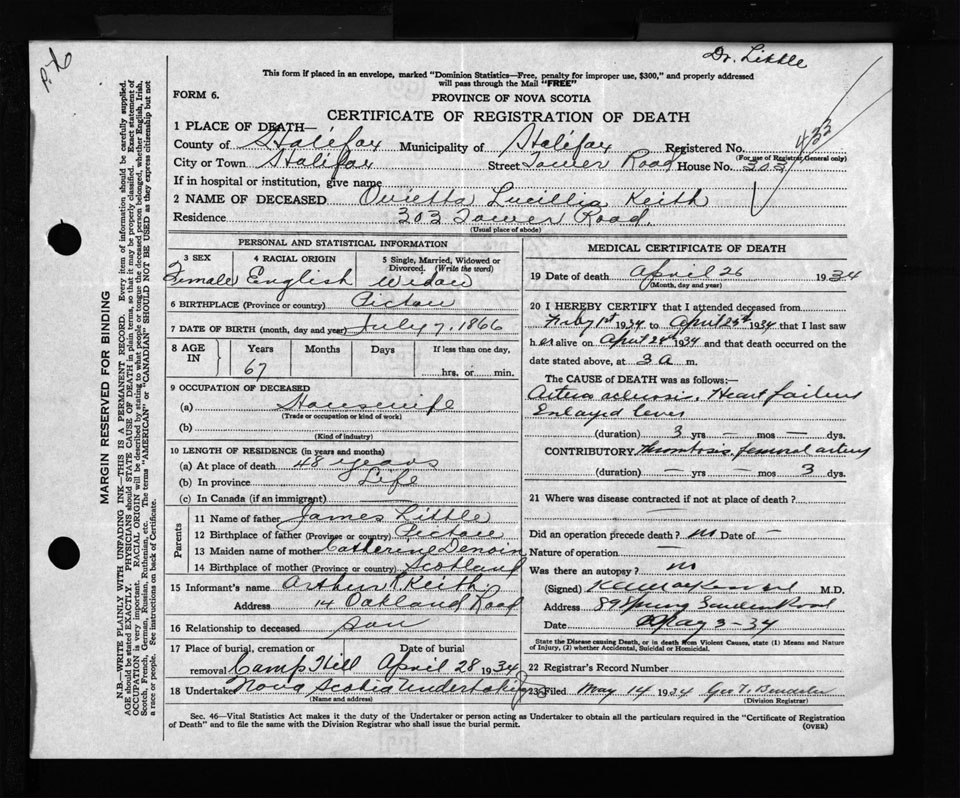 Dr. Little
This form if placed in an envelope, marked "Dominion Statistics—Free, penalty for improper use, $300," and properly addressed
will pass through the Mail "FREE"
FORM 6.
PROVINCE OF NOVA SCOTIA
CERTIFICATE OF REGISTRATION OF DEATH
433
1 PLACE OF DEATH—
County of Halifax Municipality of Halifax Registered No.
(For use of Registrar General only)
City or Town Halifax Street Tower Road House No. 303
If in hospital or institution, give name
2 NAME OF DECEASED Ouietta Lucillia Keith
Residence 303 Tower Road.
(Usual place of abode)
PERSONAL AND STATISTICAL INFORMATION
3 SEX 4 RACIAL ORIGIN 5 Single, Married, Widowed or Divorced. (Write the word)
Female English Widow
6 BIRTHPLACE (Province or country) Pictou
7 DATE OF BIRTH (month, day and year) July 7, 1866
8 AGE IN Years Months Days If less than one day,
67 hrs. or min.
9 OCCUPATION OF DECEASED
(a) Housewife
(Trade or occupation or kind of work)
(b)
(Kind of industry)
10 LENGTH OF RESIDENCE (in years and months)
(a) At place of death 48 years
(b) In province Life
(c) In Canada (if an immigrant)
Parents
11 Name of father James Little
12 Birthplace of father (Province or country) Pictou
13 Maiden name of mother Catherine
14 Birthplace of mother (Province or country) Scotland
15 Informant's name Arthur Keith
Address 14 Oakland Road
16 Relationship to deceased Son
17 Place of burial, cremation or Date of burial
removal Camp Hill April 28 1934
18 Undertaker Nova Scotia Undertaking
(Name and address)
MEDICAL CERTIFICATE OF DEATH
19 Date of death April 26 1934
(Month, day and year)
20 I HEREBY CERTIFY that I attended deceased from
1st 1934 to April 25th 1934 that I last saw
her alive on April 24th 1934 and that death occurred on the
date stated above, at 3 A m.
The CAUSE of DEATH was as follows:—
Arterio sclerosis, Heart failure
Enlarged liver
(duration) 3 yrs — mos — dys.
CONTRIBUTORY Thrombosis femoral artery
(duration) — yrs — mos 3 dys.
21 Where was disease contracted if not at place of death?
Did an operation precede death? no Date of —
Nature of operation —
Was there an autopsy? no
(Signed) M.D.
Address 89 Spring Garden Road
Date May 3-34
State the Disease causing Death, or in death from Violent Causes, state (1) Means and Nature
of Injury, (2) whether Accidental, Suicidal or Homicidal.
22 Registrar's Record Number
23 Filed May 14 1934 Geo T.
(Division Registrar)
Sec. 46—Vital Statistics Act makes it the duty of the Undertaker or person acting as Undertaker to obtain all the particulars required in the "Certificate of Registration
of Death" and to file the same with the Division Registrar who shall issue the burial permit.
(OVER)
MARGIN RESERVED FOR BINDING
N.B.—WRITE PLAINLY WITH UNFADING INK—THIS IS A PERMANENT RECORD. Every item of information should be carefully supplied.
AGE should be stated EXACTLY. PHYSICIANS should STATE CAUSE OF DEATH in plain terms, so that it may be properly classified. Exact statement of
OCCUPATION is very important. RACIAL ORIGIN will be described by stating to what people or tongue the deceased person belonged, whether English, Irish,
Scotch, French, German, Russian, Ruthenian, etc. The terms "AMERICAN" or "CANADIAN" SHOULD NOT BE USED as they express citizenship but not
a race or people. See instructions on back of Certificate.